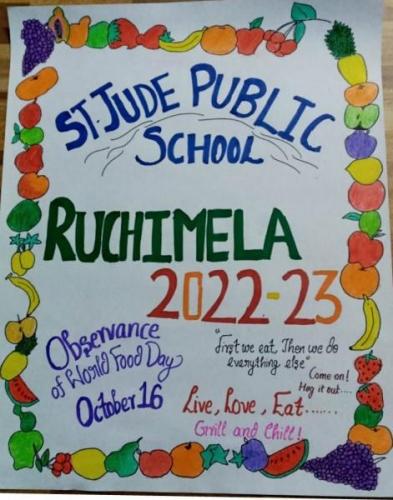 ST. JUDE PUBLIC
SCHOOL
RUCHIMELA
2022-23
Observance
of World Food Day
October 16
"First we eat, Then we do
everything else"
Come on!
Hog it out....
Live, Love, Eat......
Grill and Chill!